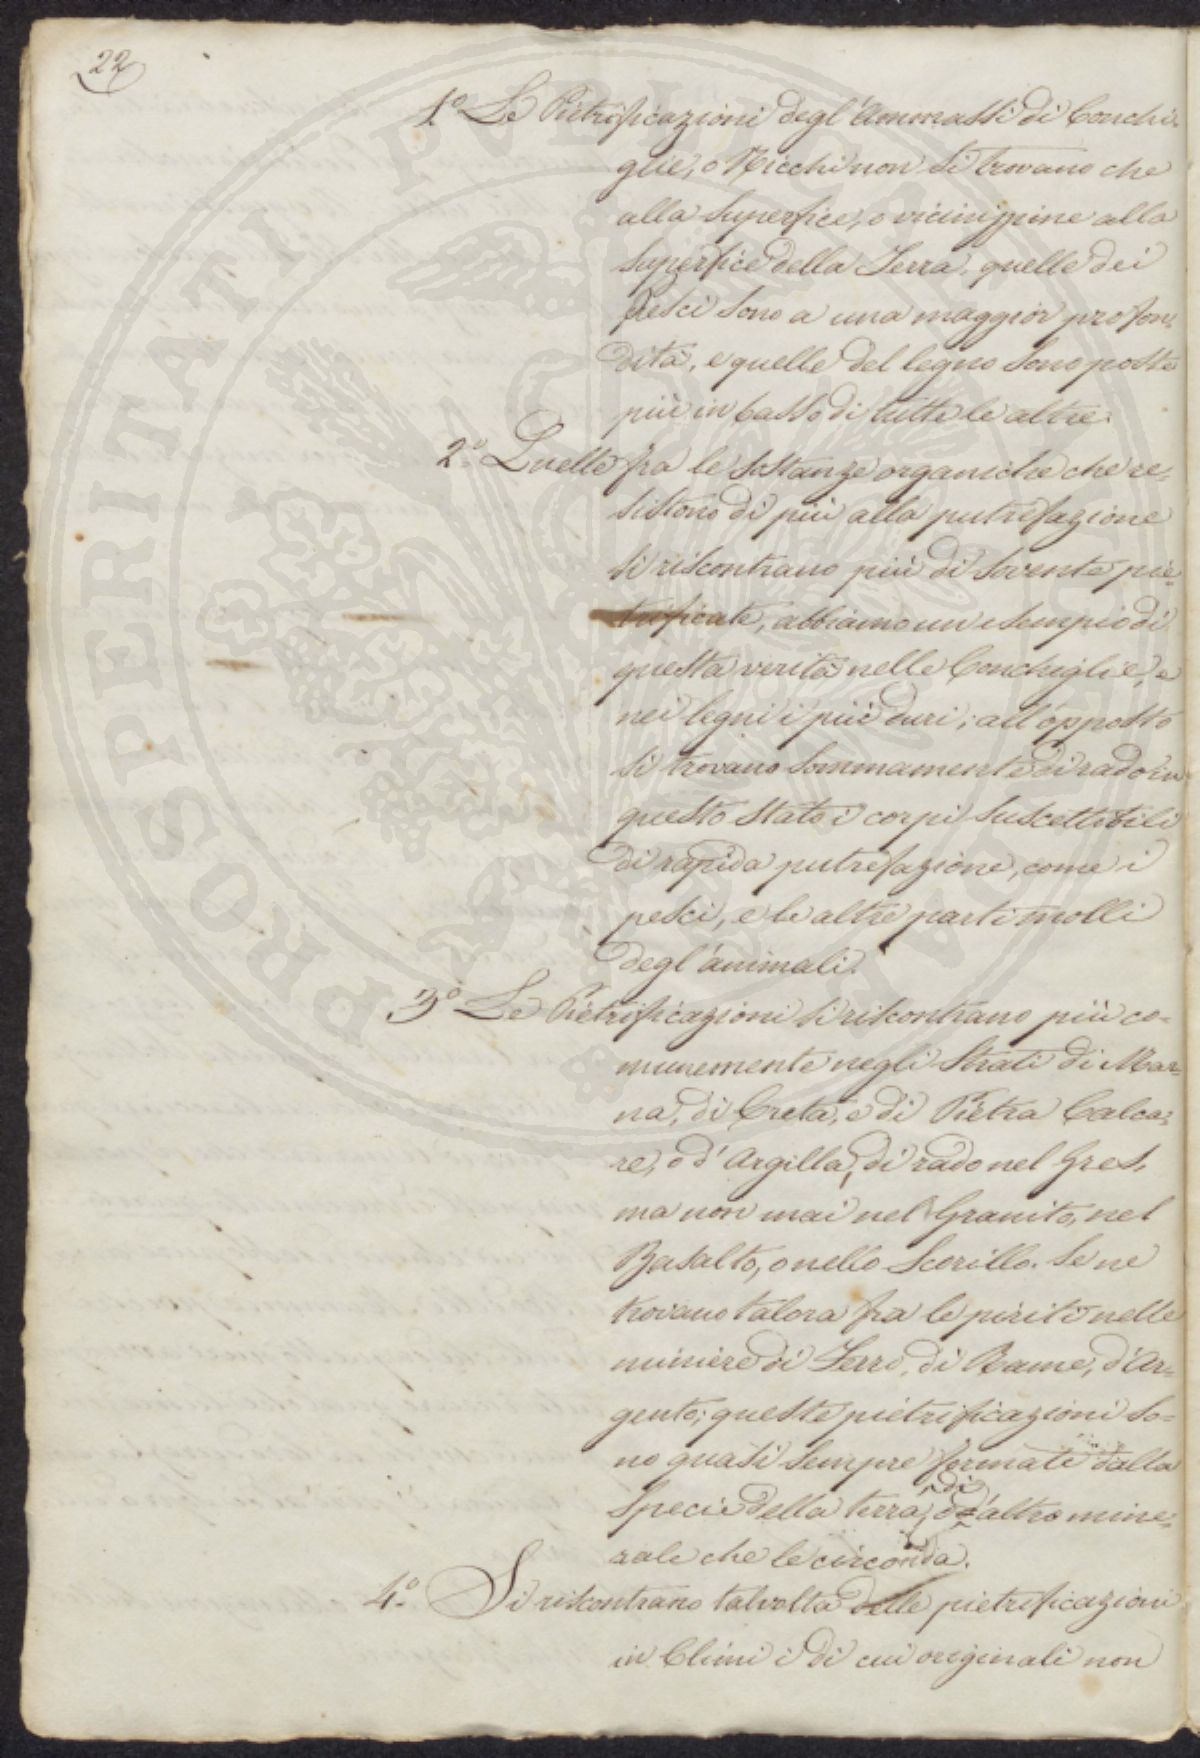 22
1.º Le Pietrificazioni degl'Ammassi di Conchi-
glie, o Nicchi non si trovano che
alla superfice, o vicinissime alla
superfice della Terra. quelle dei
pesci sono a una maggior profon-
dità, e quelle del legno sono poste
più in basso di tutte le altre.
2.º Quelle fra le sostanze organiche che re-
sistono di più alla putrefazione
si riscontrano più di sovente pie-
trificate, abbiamo un esempio di
questa verità nelle Conchiglie, e
nei legni i più duri; all'opposto
si trovano sommamente di rado in
questo stato i corpi suscettibili
di rapida putrefazione, come i
pesci, e le altre parti molli
degl'animali.
3.º Le Pietrificazioni si riscontrano più co-
munemente negli Strati di Mar-
na, di Creta, e di Pietra Calca-
re, o d'Argilla, di rado nel Gres,
ma non mai nel Granito, nel
Basalto, o nello Scorillo. Se ne
trovano talora fra le piriti nelle
miniere di Ferro, di Rame, d'Ar-
gento; queste pietrificazioni so-
no quasi sempre formate dalla
specie della terra, o di altro mine-
rale che le circonda.
4.º Si riscontrano talvolta delle pietrificazioni
in Climi i di cui originali non
PROSPERITATI PUBLICAE